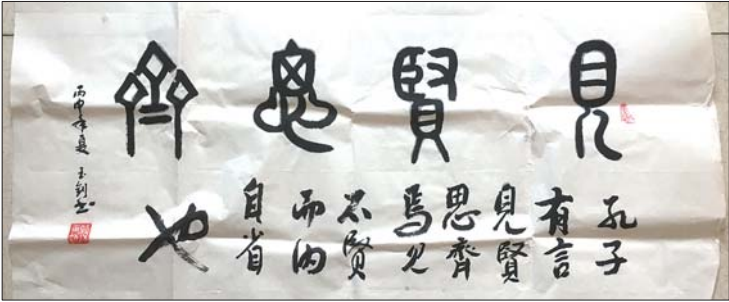 見賢思齊
孔子
有言
見賢
思齊
焉見
不賢
而内
自省
也
丙申年夏